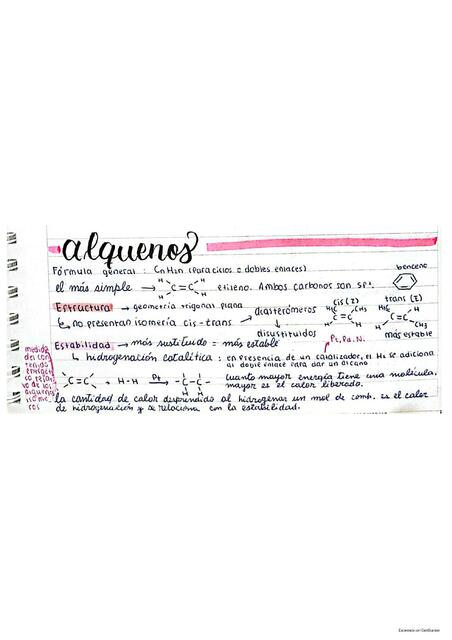 alquenos
Fórmula general: CnH2n (para ciclos o dobles enlaces)
benceno
el más simple → H H C=C H H etileno. Ambos carbonos son sp².
Estructura → geometría trigonal plana
diasterómeros
cis (Z)
trans (E)
↳ no presentan isomería cis-trans
disustituidos
H3C CH3 C=C H H
H3C H C=C H CH3
más estable
Estabilidad → más sustituido = más estable
Pt, Pa, Ni
↳ hidrogenación catalítica: en presencia de un catalizador, el H2 se adiciona
al doble enlace para dar un alcano
C=C + H-H Pt → -C-C- H H
cuanto mayor energía tiene una molécula,
mayor es el calor liberado.
la cantidad de calor desprendido al hidrogenar un mol de comb. es el calor
de hidrogenación y se relaciona con la estabilidad.
medida
del con
tenido
energéti
co relati
vo de los
alquenos
isómé
ricos
Escaneado con CamScanner